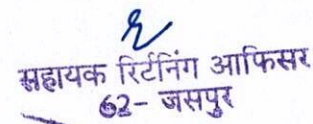 सहायक रिटर्निंग आफिसर
62- जसपुर